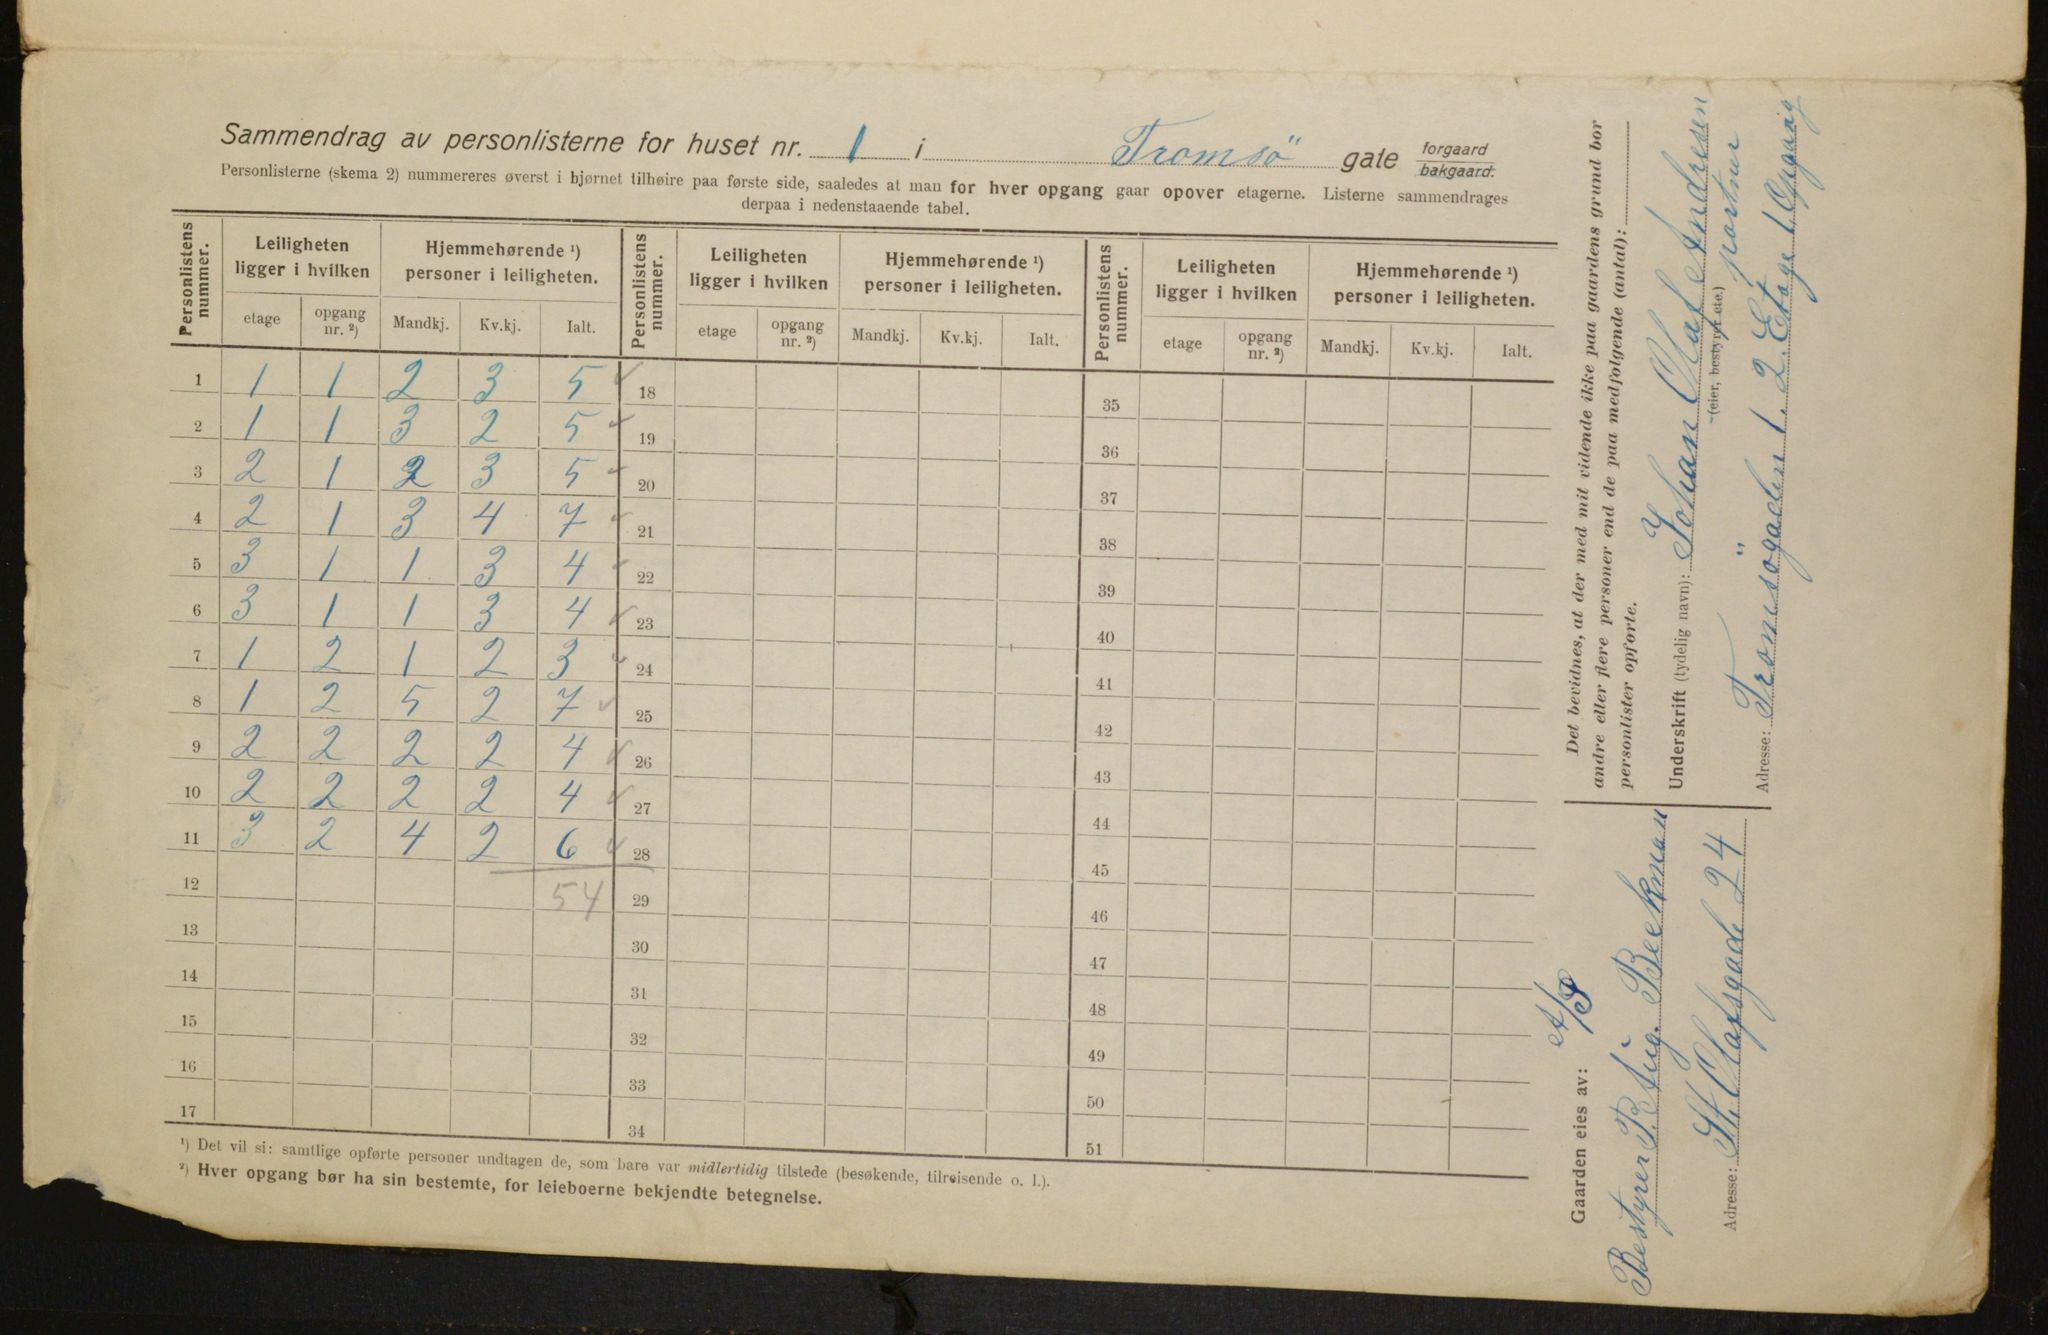 Sammendrag av personlisterne for huset nr. 1 i Tromsö gate forgaard bakgaard.
Personlisterne (skema 2) nummereres øverst i hjørnet tilhøire paa første side, saaledes at man for hver opgang gaar opover etagerne. Listerne sammendrages
derpaa i nedenstaaende tabel.
Personlistens nummer. Leiligheten ligger i hvilken Hjemmehørende ¹) personer i leiligheten. Personlistens nummer. Leiligheten ligger i hvilken Hjemmehørende ¹) personer i leiligheten. Personlistens nummer. Leiligheten ligger i hvilken Hjemmehørende ¹) personer i leiligheten.
etage opgang nr. ²) Mandkj. Kv.kj. Ialt. etage opgang nr. ²) Mandkj. Kv.kj. Ialt. etage opgang nr. ²) Mandkj. Kv.kj. Ialt.
1 1 1 2 3 5 ✓ 18 35
2 1 1 3 2 5 ✓ 19 36
3 2 1 2 3 5 ✓ 20 37
4 2 1 3 4 7 ✓ 21 38
5 3 1 1 3 4 ✓ 22 39
6 3 1 1 3 4 ✓ 23 40
7 1 2 1 2 3 ✓ 24 41
8 1 2 5 2 7 ✓ 25 42
9 2 2 2 2 4 ✓ 26 43
10 2 2 2 2 4 ✓ 27 44
11 3 2 4 2 6 ✓ 28 45
12 54 29 46
13 30 47
14 31 48
15 32 49
16 33 50
17 34 51
¹) Det vil si: samtlige opførte personer undtagen de, som bare var midlertidig tilstede (besøkende, tilreisende o. l.).
²) Hver opgang bør ha sin bestemte, for leieboerne bekjendte betegnelse.
Det bevidnes, at der med mit vidende ikke paa gaardens grund bor
andre eller flere personer end de paa medfølgende (antal):
personlister opførte.
Underskrift (tydelig navn): Johan Olaf Andresen
(eier, bestyrer etc.) portner
Adresse: Tromsögaden 1. 2. Etage 1 Opgang
Gaarden eies av: A/S
Bestyrer P. Aug. Beekman
Adresse: St. Olafsgade 24